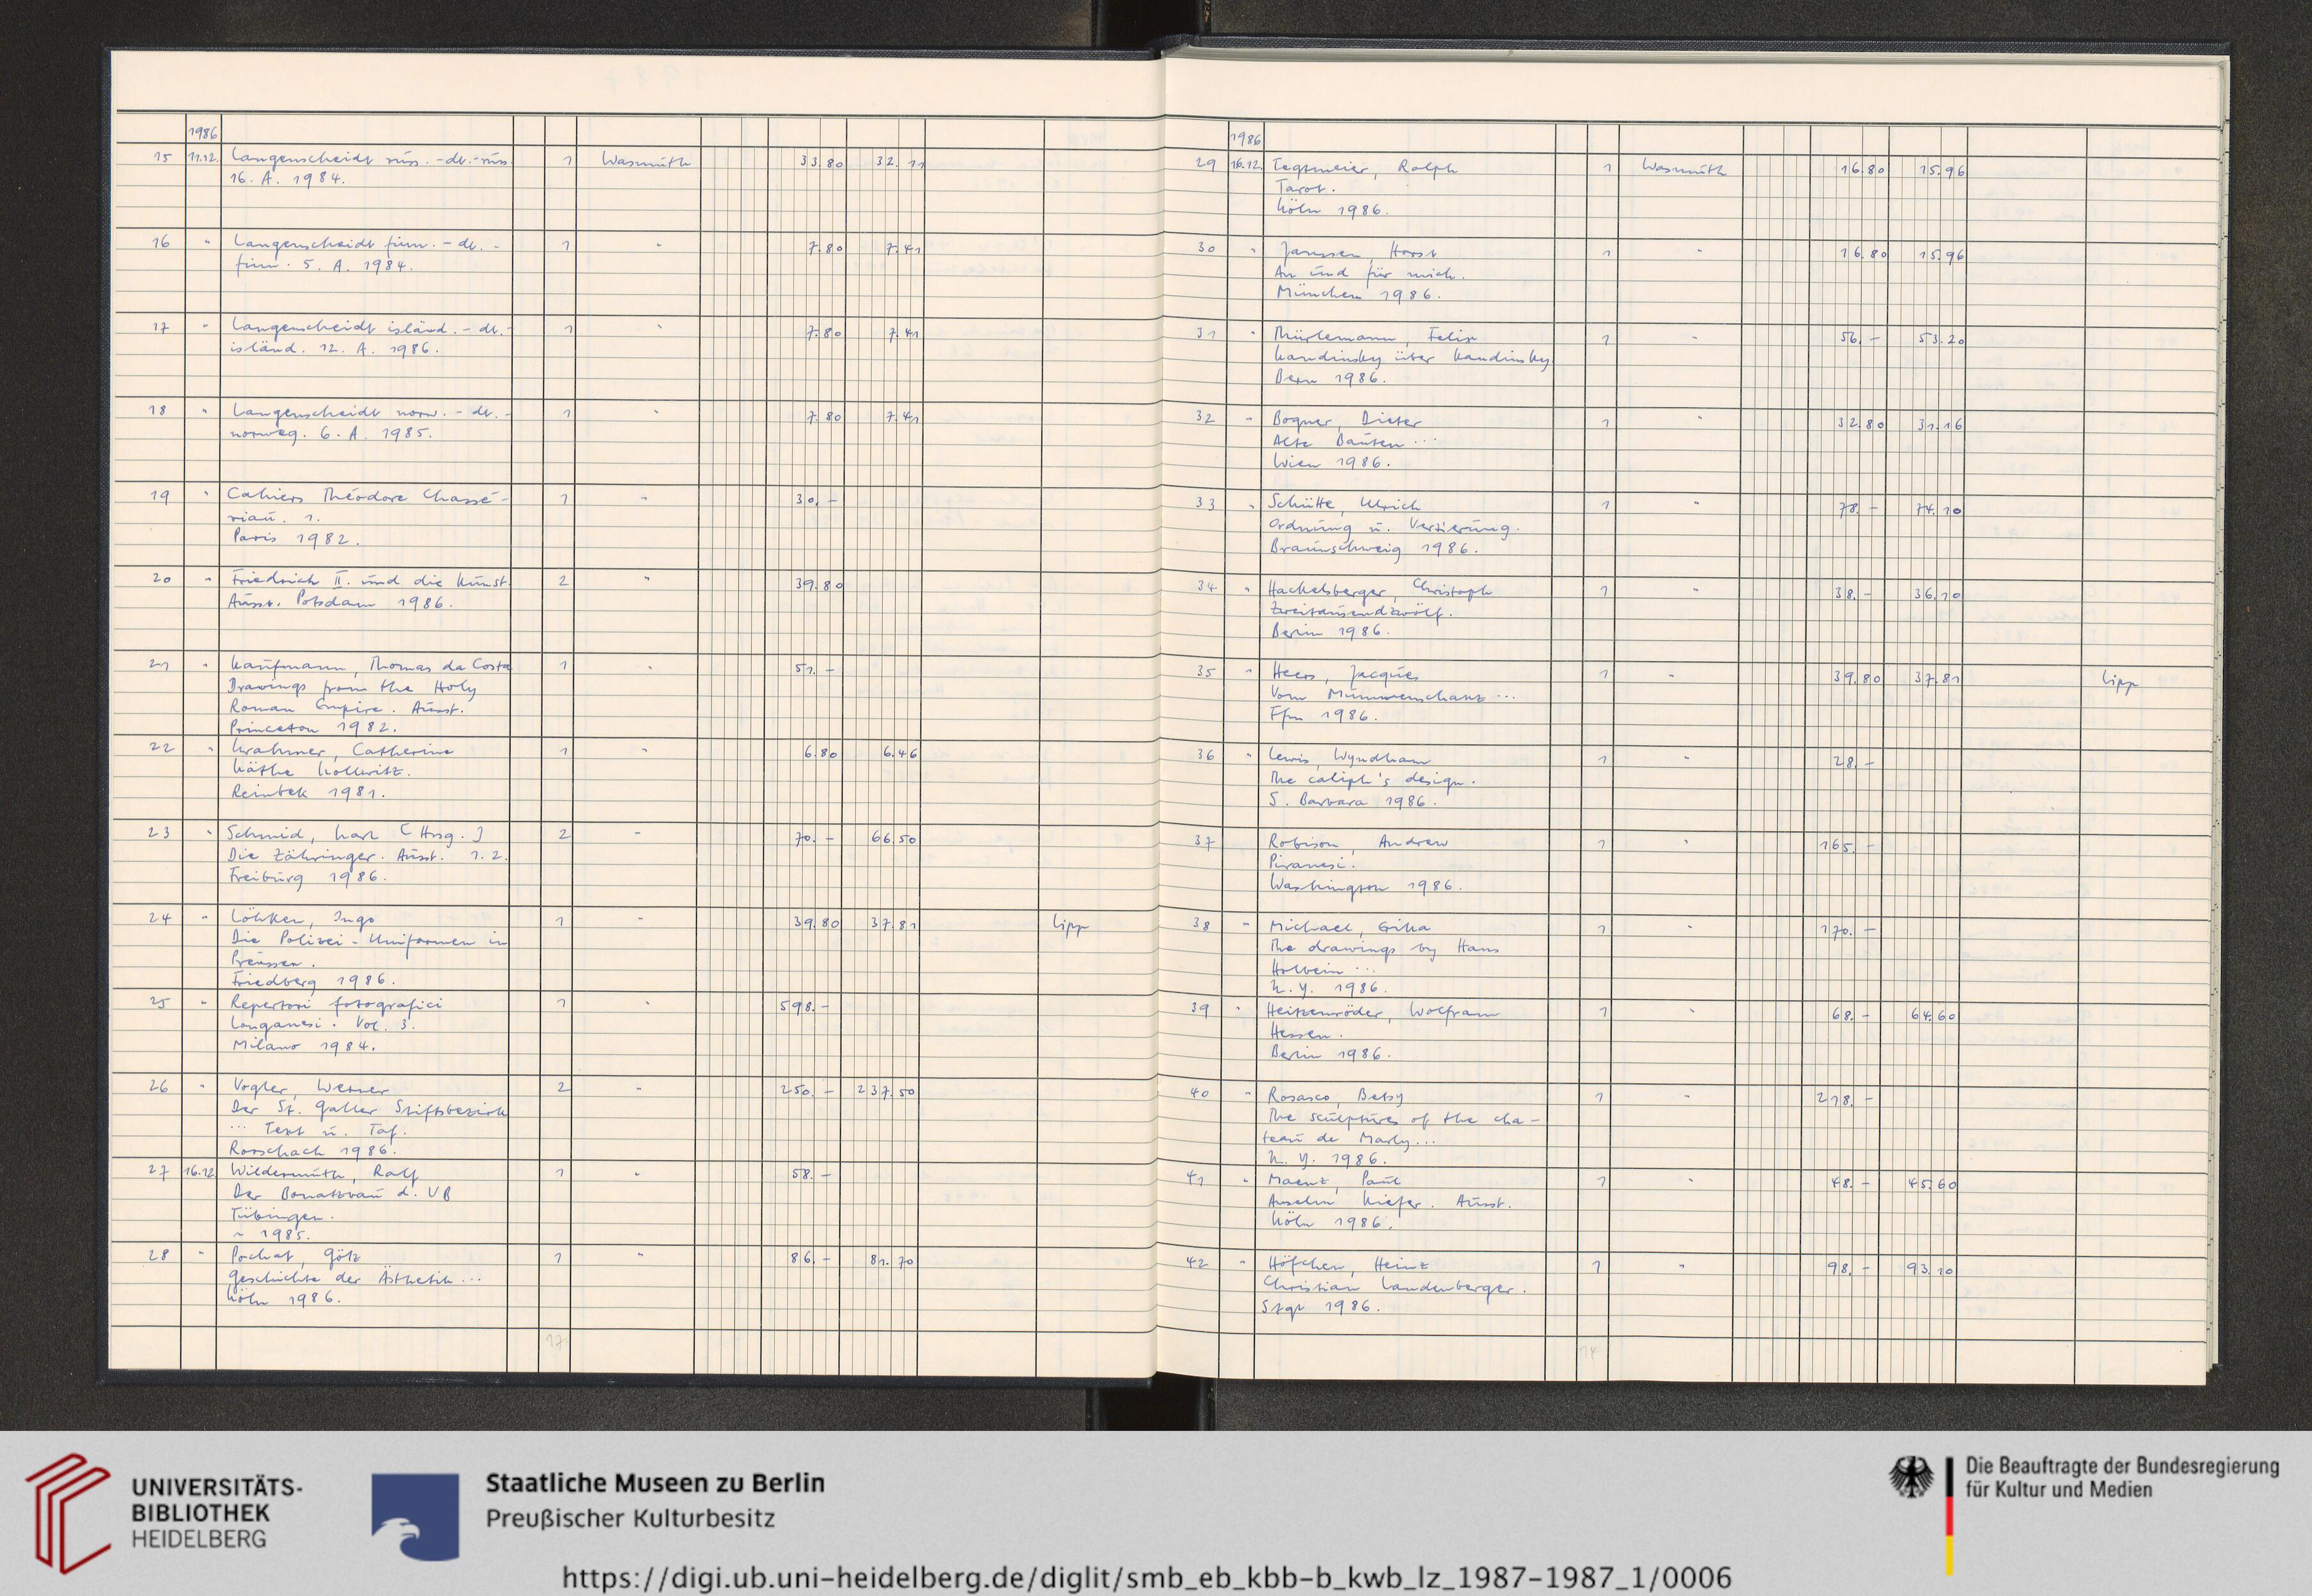 1986
15 11.12. Langenscheidt russ. -dt.-russ. 1 Wasmuth 33.80 32.11
16. A. 1984.
16 " Langenscheidt finn. - dt. - 1 " 7.80 7.41
finn. 5. A. 1984.
17 " Langenscheidt isländ. - dt. - 1 " 7.80 7.41
isländ. 12. A. 1986.
18 " Langenscheidt norw. - dt. - 1 " 7.80 7.41
norweg. 6. A. 1985.
19 " Cahiers Théodore Chassé- 1 " 30.-
riau. 1.
Paris 1982.
20 " Friedrich II. und die Kunst. 2 " 39.80
Ausst. Potsdam 1986.
21 " Kaufmann, Thomas da Costa 1 " 51.-
Drawings from the Holy
Roman Empire. Ausst.
Princeton 1982.
22 " Krahmer, Catherine 1 " 6.80 6.46
Käthe Kollwitz.
Reinbek 1981.
23 " Schmid, Karl [Hrsg.] 2 " 70.- 66.50
Die Zähringer. Ausst. 1.2.
Freiburg 1986.
24 " Löhken, Ingo 1 " 39.80 37.81 Lipp
Die Polizei-Uniformen in
Preussen.
Friedberg 1986.
25 " Repertori fotografici 1 " 598.-
Longanesi. Vol. 3.
Milano 1984.
26 " Vogler, Werner 2 " 250.- 237.50
Der St. Galler Stiftsbezirk
... Text u. Taf.
Rorschach 1986.
27 16.12. Wildermuth, Ralf 1 " 58.-
Der Bonatzbau d. UB
Tübingen.
~ 1985.
28 " Pochat, Götz 1 " 86.- 81.70
Geschichte der Ästhetik ...
Köln 1986.
17
1986
29 16.12. Tegtmeier, Ralph 1 Wasmuth 16.80 15.96
Tarot.
Köln 1986.
30 " Janssen, Horst 1 " 16.80 15.96
An und für mich.
München 1986.
31 " Thürlemann, Felix 1 " 56.- 53.20
Kandinsky über Kandinsky.
Bern 1986.
32 " Bogner, Dieter 1 " 32.80 31.16
Alte Bauten ...
Wien 1986.
33 " Schütte, Ulrich 1 " 78.- 74.10
Ordnung u. Verzierung.
Braunschweig 1986.
34 " Hackelsberger, Christoph 1 " 38.- 36.10
Zweitausendzwölf.
Berlin 1986.
35 " Heers, Jacques 1 " 39.80 37.81 Lipp
Vom Mummenschanz ...
Ffm 1986.
36 " Lewis, Wyndham 1 " 28.-
The caliph's design.
S. Barbara 1986.
37 Robison, Andrew 1 " 165.-
Piranesi.
Washington 1986.
38 " Michael, Erika 1 " 170.-
The drawings by Hans
Holbein ...
N.Y. 1986.
39 " Heitzenröder, Wolfram 1 " 68.- 64.60
Hessen.
Berlin 1986.
40 " Rosasco, Betsy 1 " 218.-
The sculptures of the cha-
teau de Marly...
N.Y. 1986.
41 " Maenz, Paul 1 " 48.- 45.60
Anselm Kiefer. Ausst.
Köln 1986.
42 " Höfchen, Heinz 1 " 98.- 93.10
Christian Landenberger.
Stgt 1986.
14
UNIVERSITÄTS-
BIBLIOTHEK
HEIDELBERG
Staatliche Museen zu Berlin
Preußischer Kulturbesitz
Die Beauftragte der Bundesregierung
für Kultur und Medien
https://digi.ub.uni-heidelberg.de/diglit/smb_eb_kbb-b_kwb_lz_1987-1987_1/0006